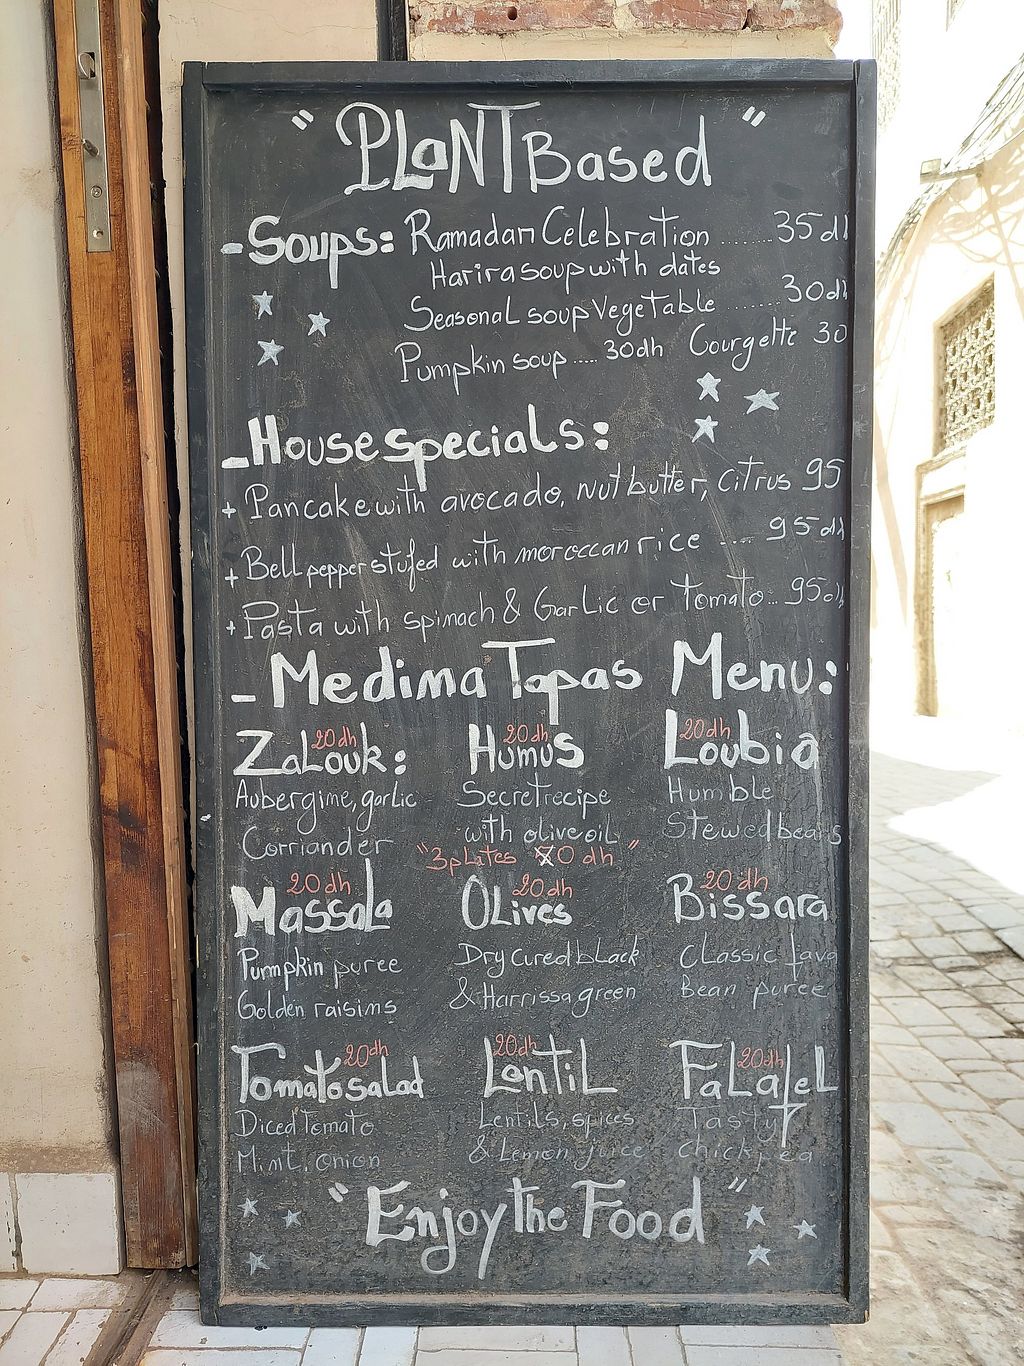 "PLaNT Based"
-Soups: Ramadan Celebration ........ 35dh
Harira soup with dates
Seasonal soup Vegetable ....... 30dh
Pumpkin soup ..... 30dh Courgette 30
-House specials:
+ Pancake with avocado, Nut butter, Citrus 95
+ Bell pepper stufed with moroccan rice .... 95dh
+ Pasta with spinach & Garlic or tomato... 95dh
- Medina Tapas Menu:
20dh 20dh 20dh
ZaLouk: Humus Loubia
Aubergine, garlic Secret recipe Humble
Corriander with olive oil Stewed beans
"3 plates 50 dh"
20dh 20dh 20dh
Massala OLives Bissara
Pumpkin puree Dry cured black Classic fava
Golden raisins & Harrissa green Bean puree
20dh 20dh 20dh
Tomato salad LentiL FaLafeL
Diced tomato Lentils, spices Tasty
Mint, onion & Lemon juice chickpea
"Enjoy the Food"